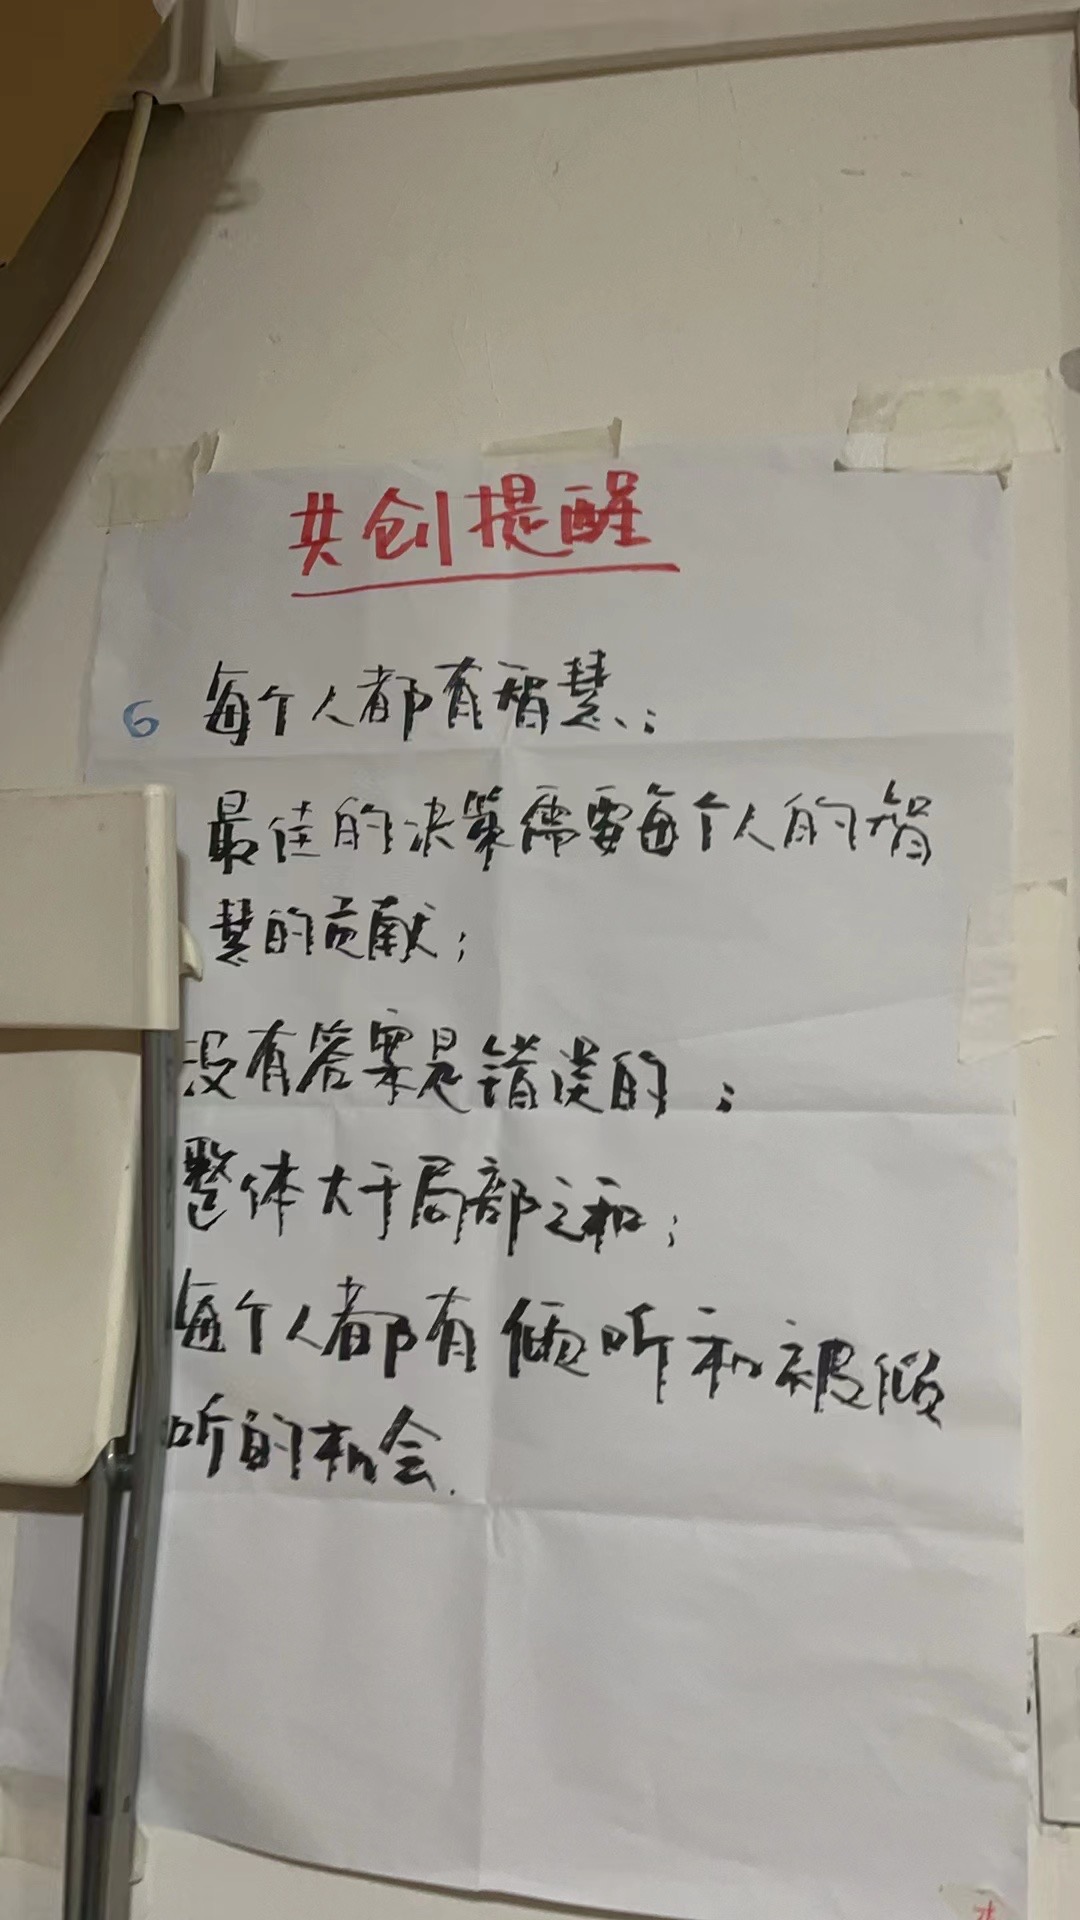 共创提醒
6 每个人都有智慧；
最佳的决策需要每个人的智
慧的贡献；
没有答案是错误的；
整体大于局部之和；
每个人都有倾听和被倾
听的机会.